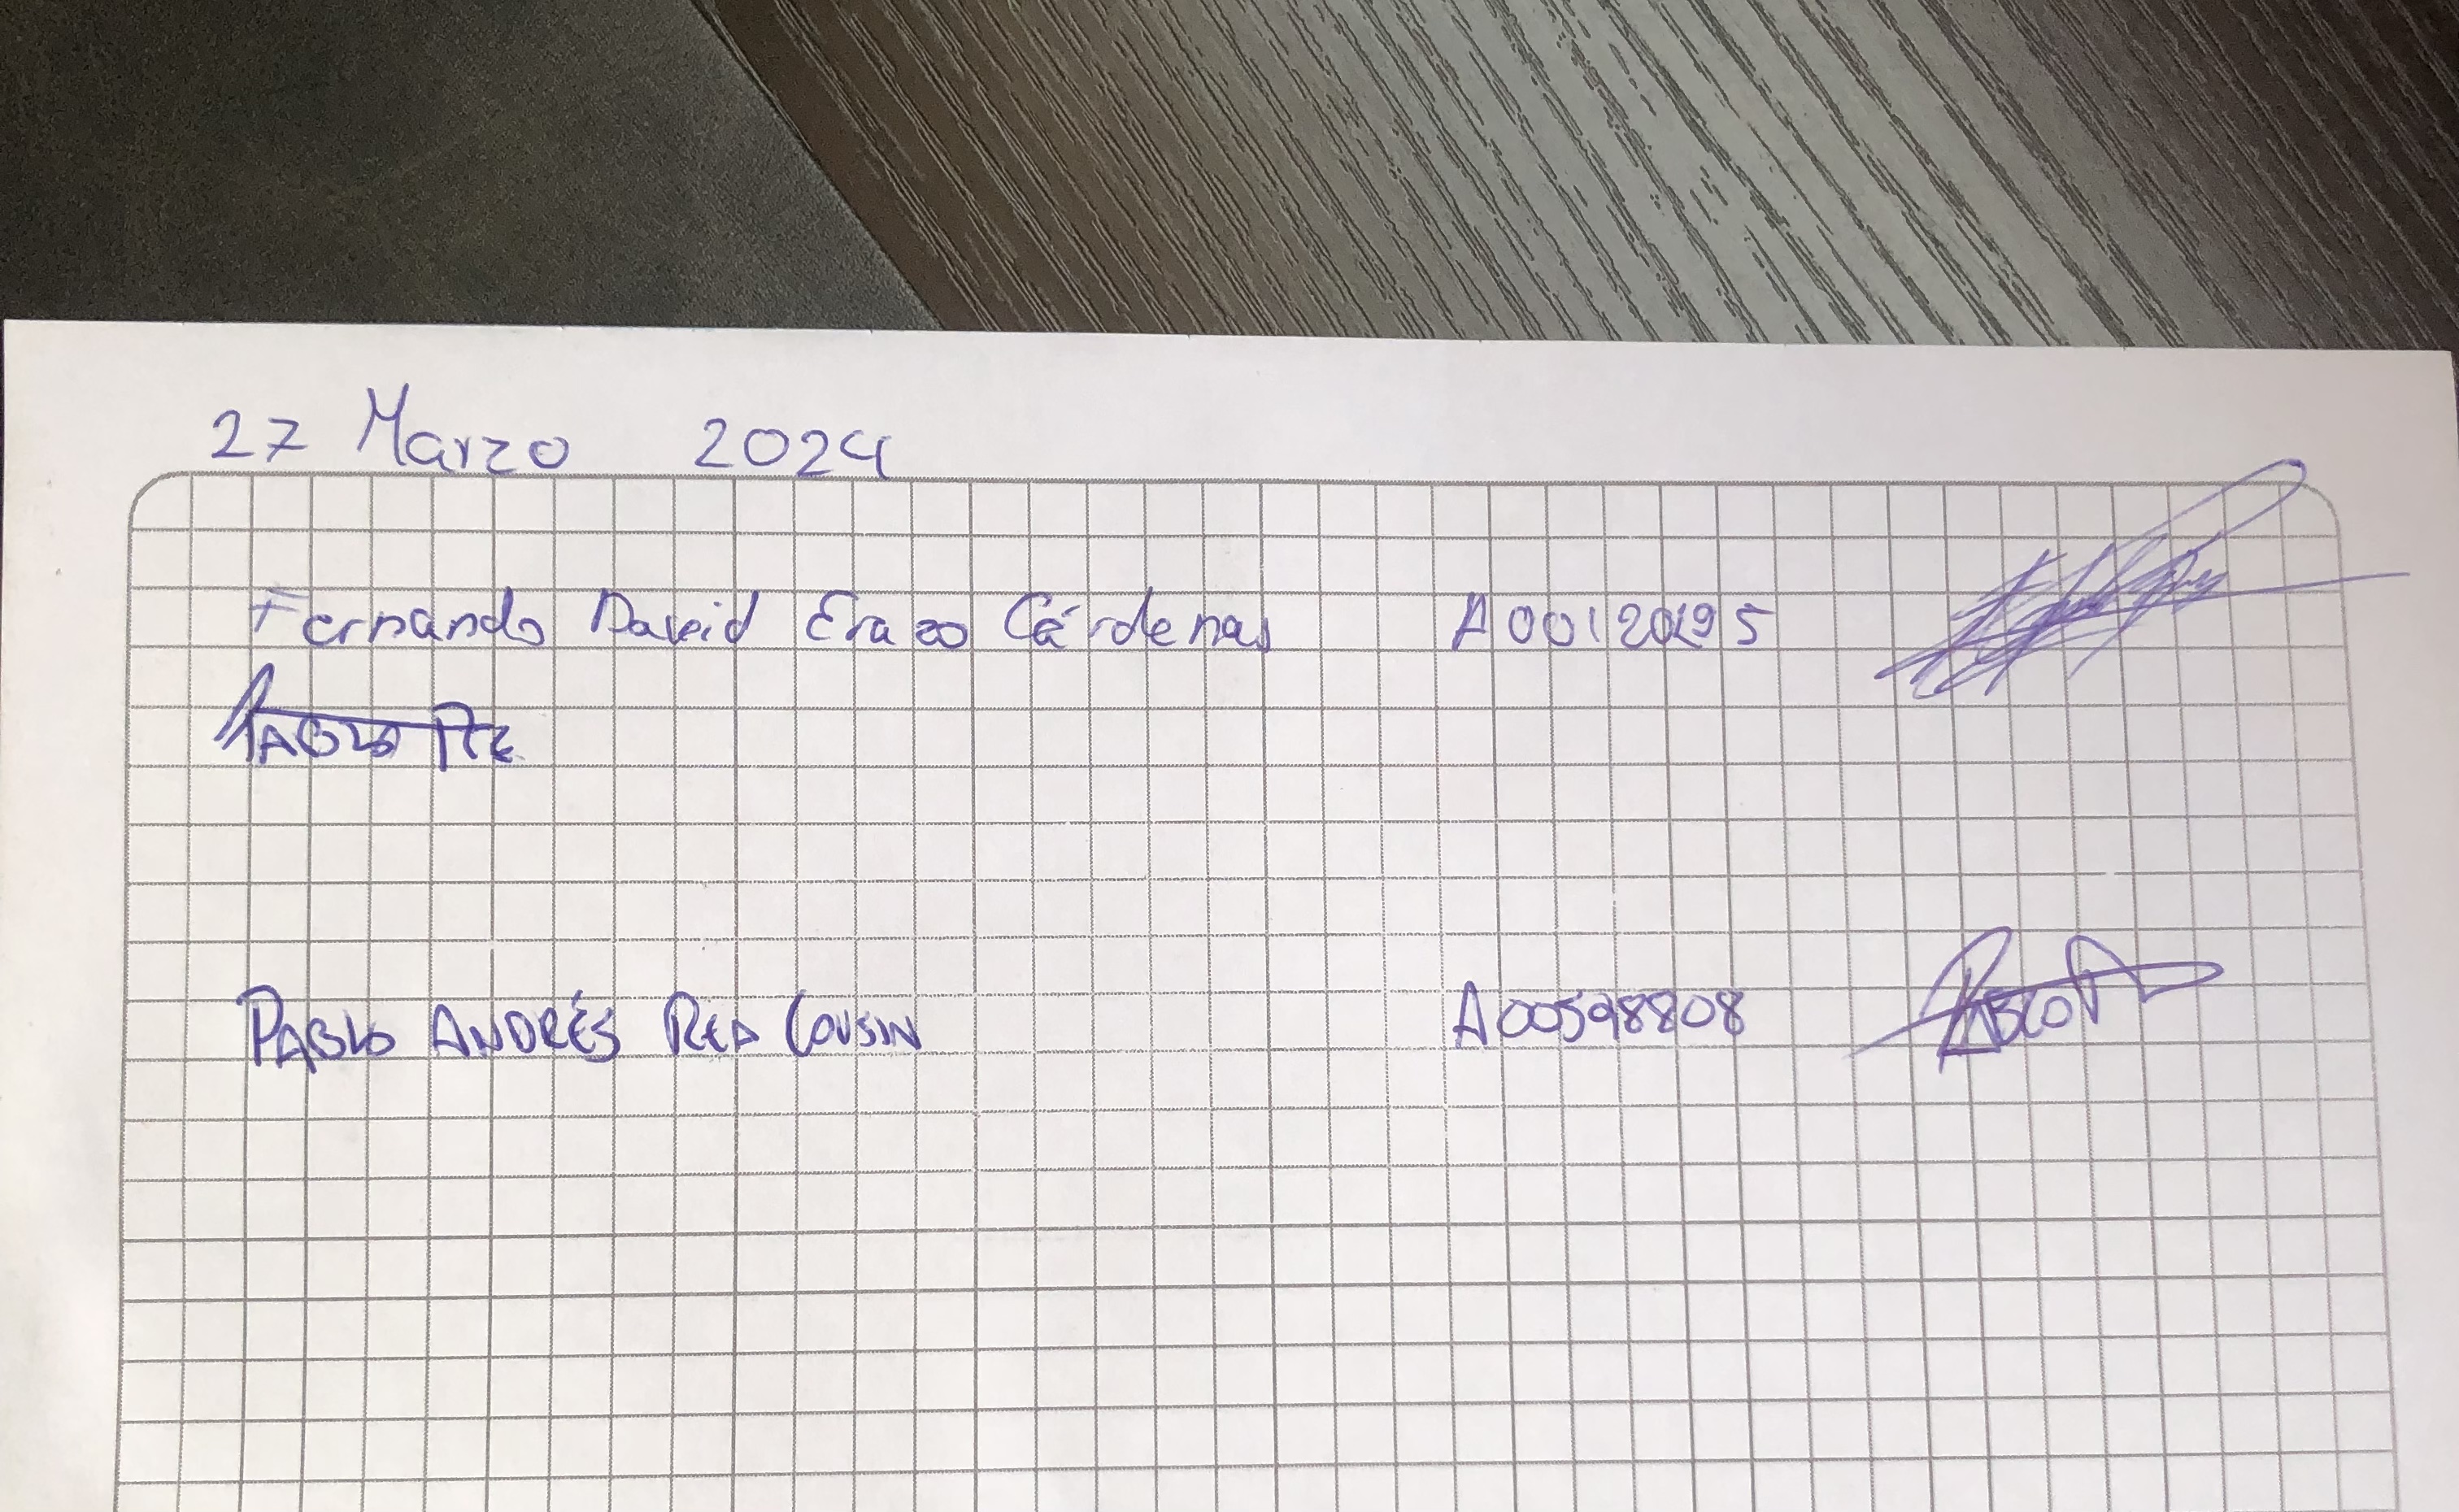 27 Marzo 2024
Fernando David Erazo Cárdenas A00120195
PABLO RE
PABLO ANDRÉS REA COUSIN A00598808 PABLO